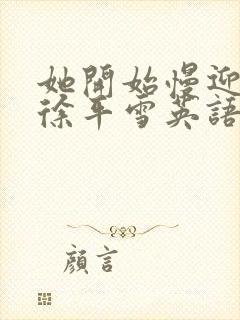 她開始慢迎
徐平雪英語
顏言